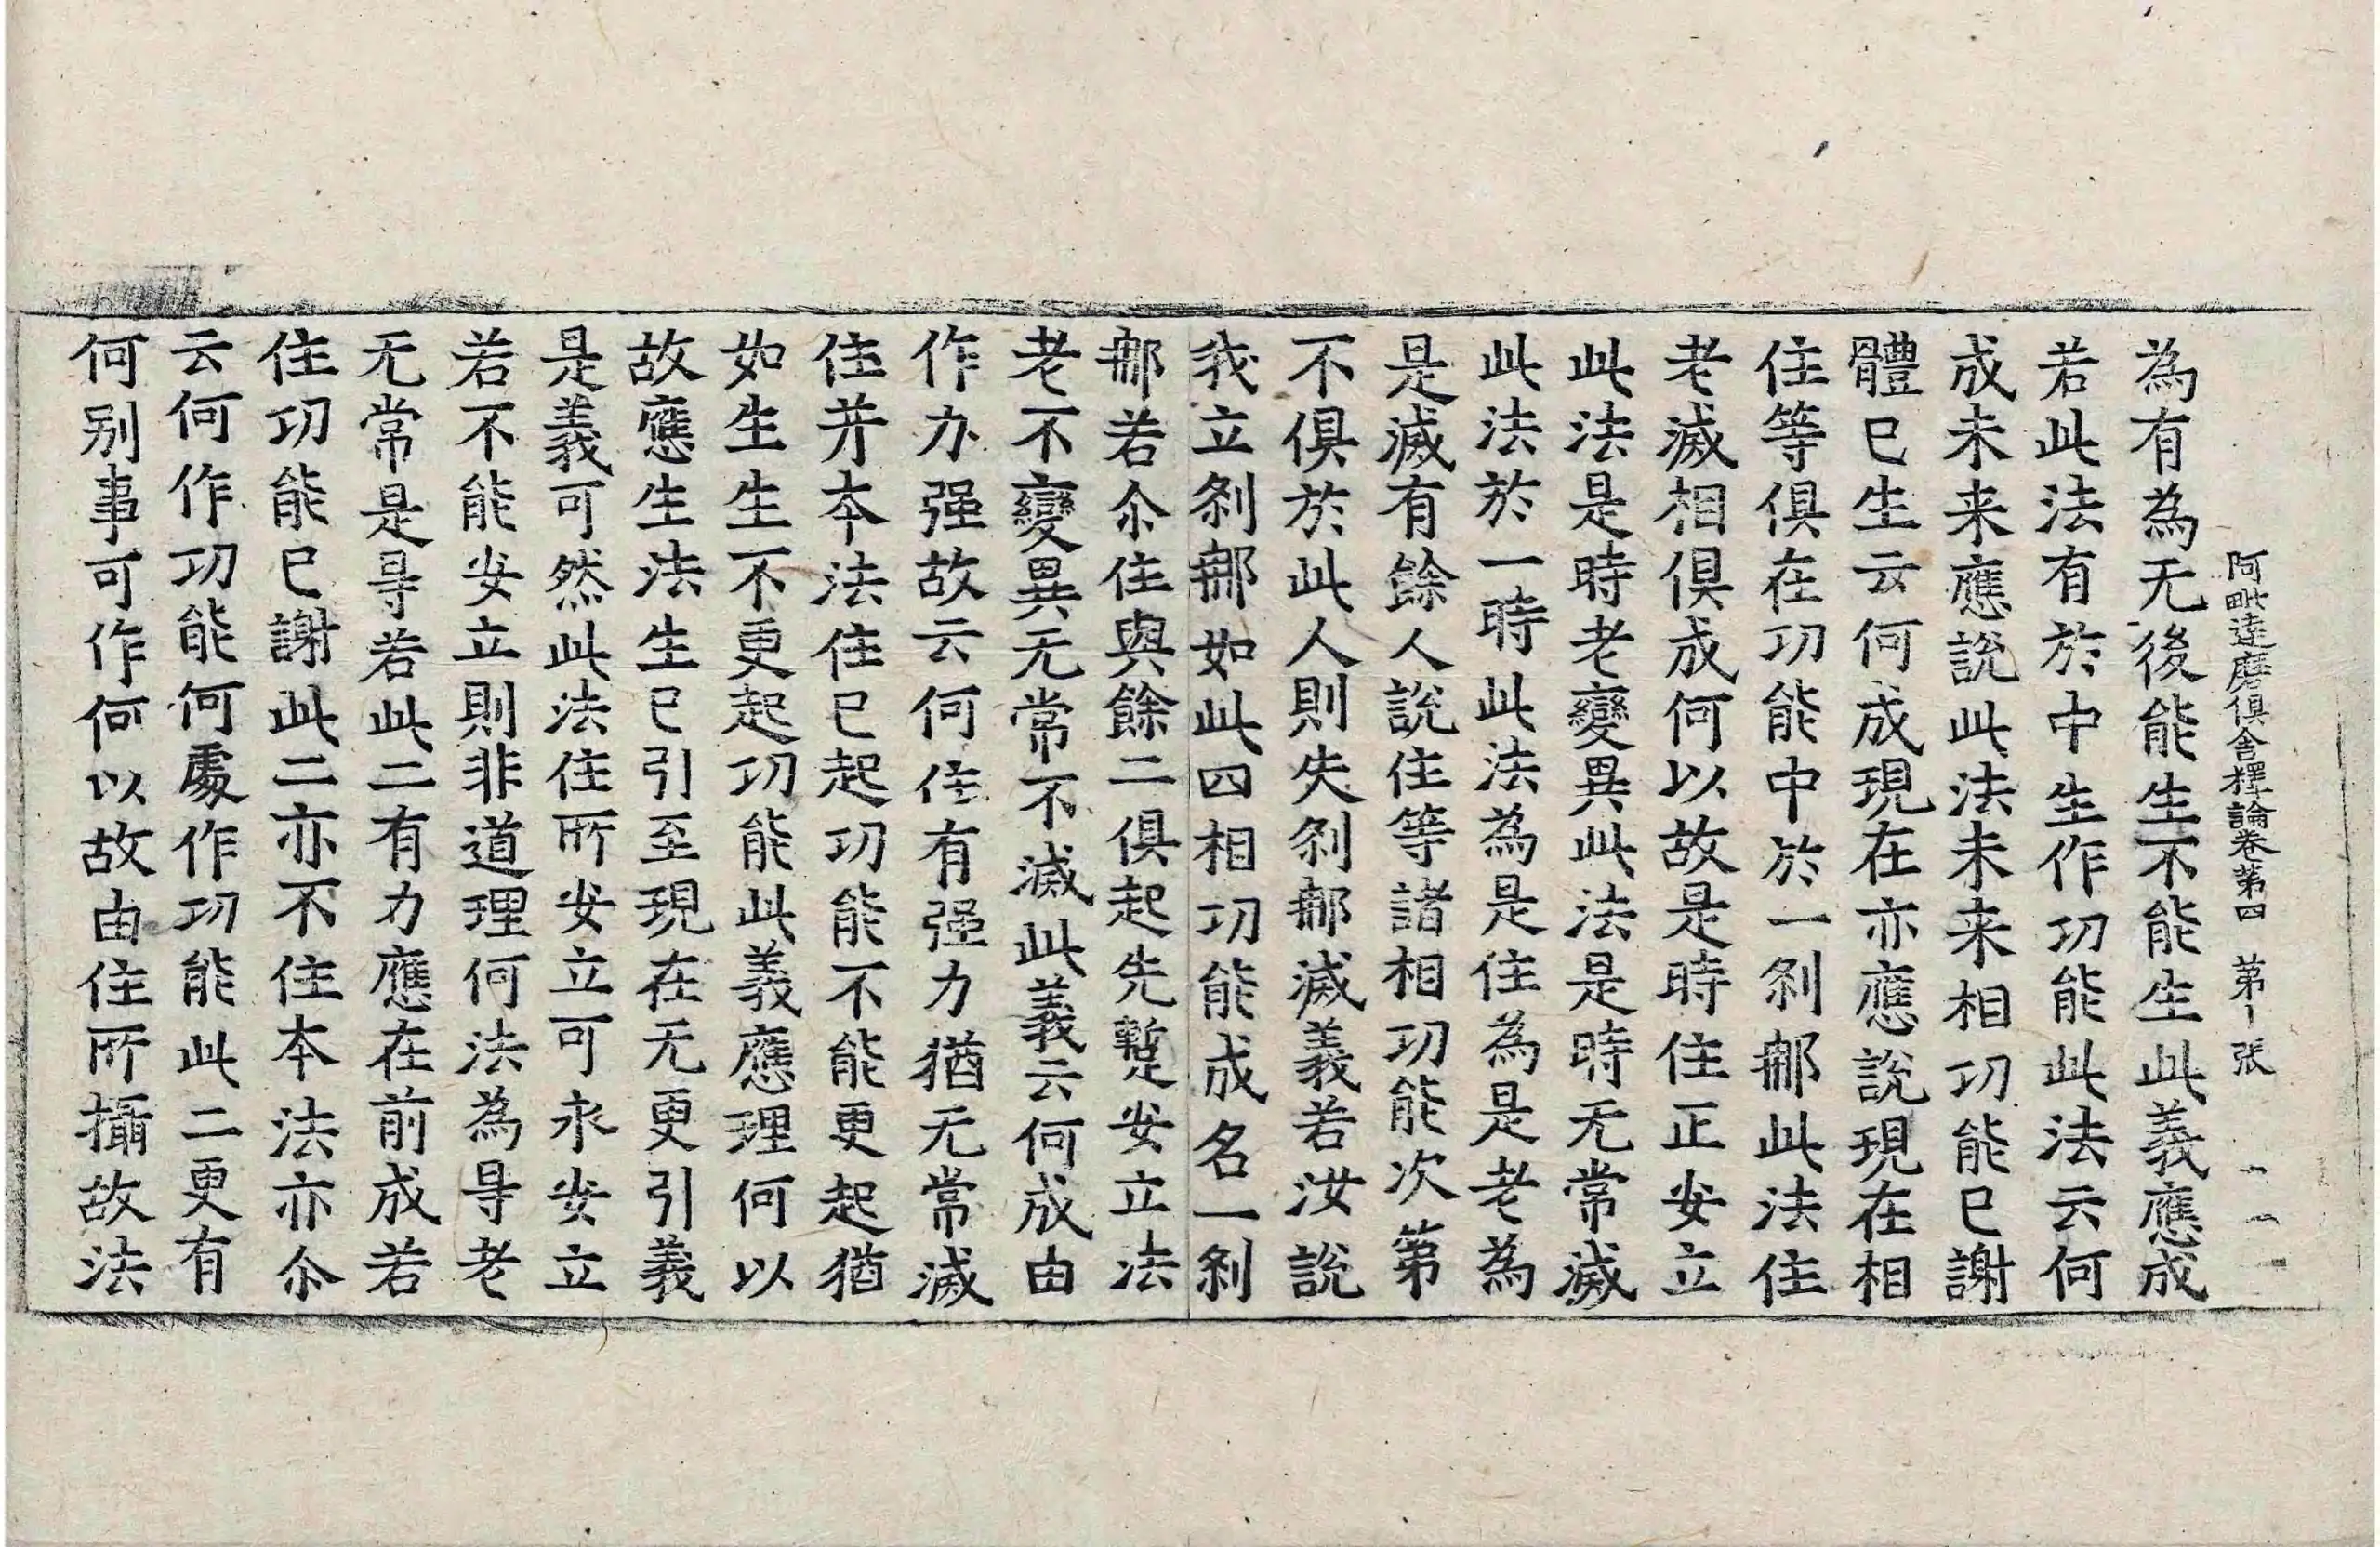 阿毗達磨俱舍釋論卷第四　第十張
為有為无後能生不能生此義應成
若此法有於中生作功能此法云何
成未来應說此法未来相功能已謝
體已生云何成現在亦應說現在相
住等俱在功能中於一剎那此法住
老滅相俱成何以故是時住正安立
此法是時老變異此法是時无常滅
此法於一時此法為是住為是老為
是滅有餘人說住等諸相功能次第
不俱於此人則失剎那滅義若汝說
我立剎那如此四相功能成名一剎
那若尒住與餘二俱起先蹔安立法
老不變異无常不滅此義云何成由
作力强故云何住有强力猶无常滅
住并本法住已起功能不能更起猶
如生生不更起功能此義應理何以
故應生法生已引至現在无更引義
是義可然此法住所安立可永安立
若不能安立則非道理何法為㝵老
无常是㝵若此二有力應在前成若
住功能已謝此二亦不住本法亦尒
云何作功能何處作功能此二更有
何别事可作何以故由住所攝故法